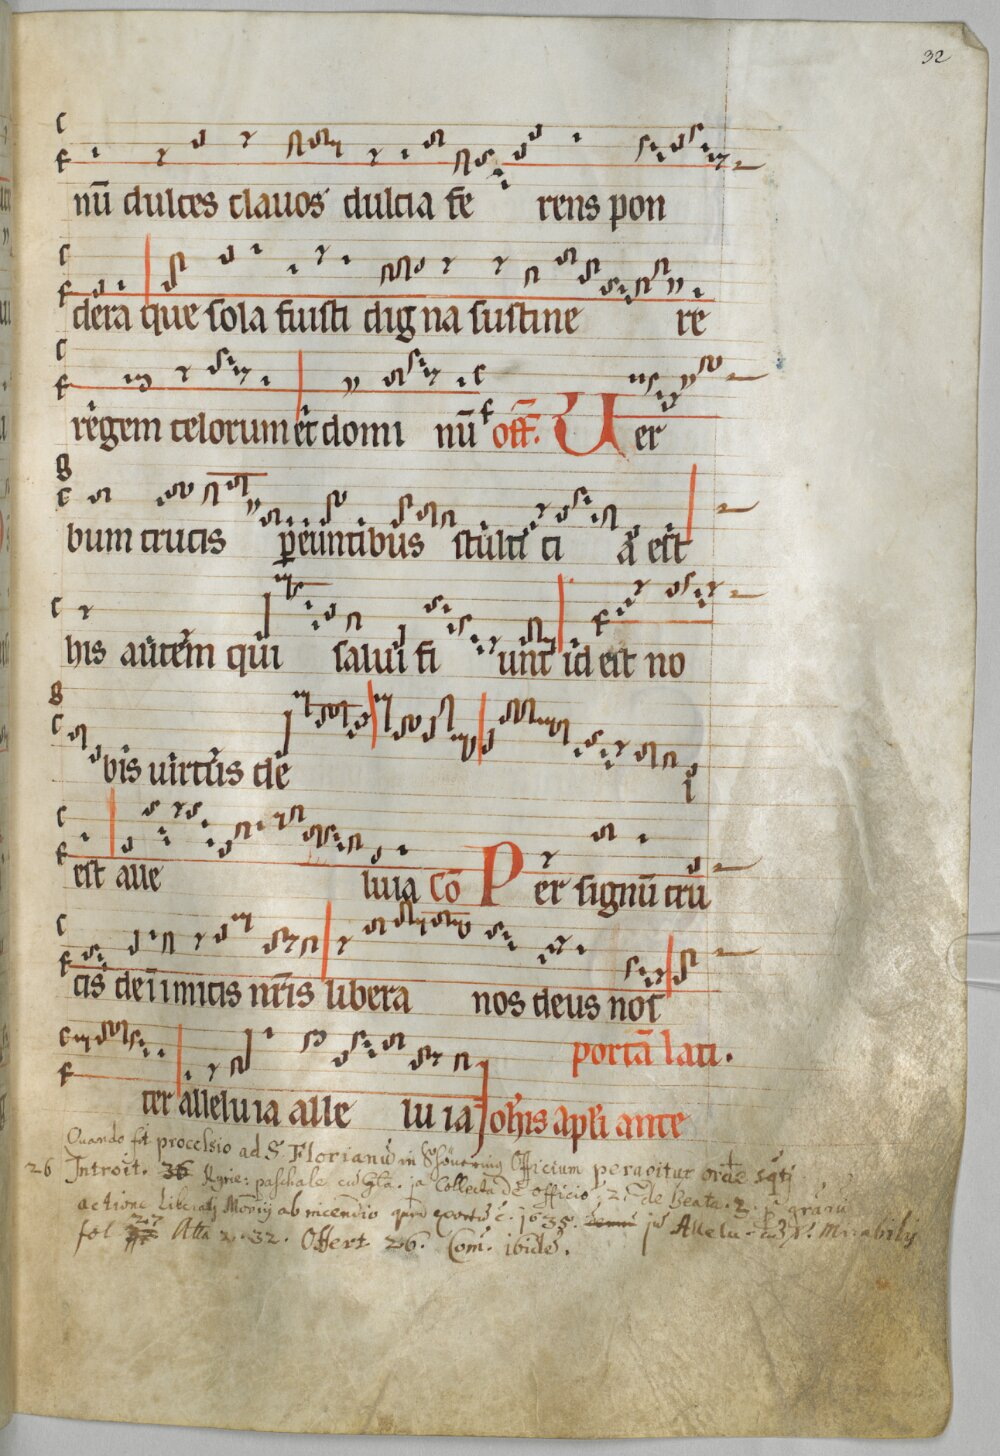 32
nū dulces clauos dulcia fe rens pon
dera que sola fuisti digna sustine re
regem celorum et domi nū off. Uer
bum crucis pereuntibus stulti ci a est
his autem qui salui fi unt id est no
bis uirtus de i
est alle luia Cō Per signū cru
cis de inimicis nr̄is libera nos deus nos
portā lati.
ter alleluia alle lu ia Joh̄is apl̄i ante
Quando fit processio ad S. Florianū in Officium peragitur
26 Introit. 36 Kyrie: paschale cū Glā. ia Collecta de officio, 2. de Beata. 3.
actione ab incendio 1635. Allelu.
fol 27 Alla 2. 32. Offert 26. Com. ibidē.